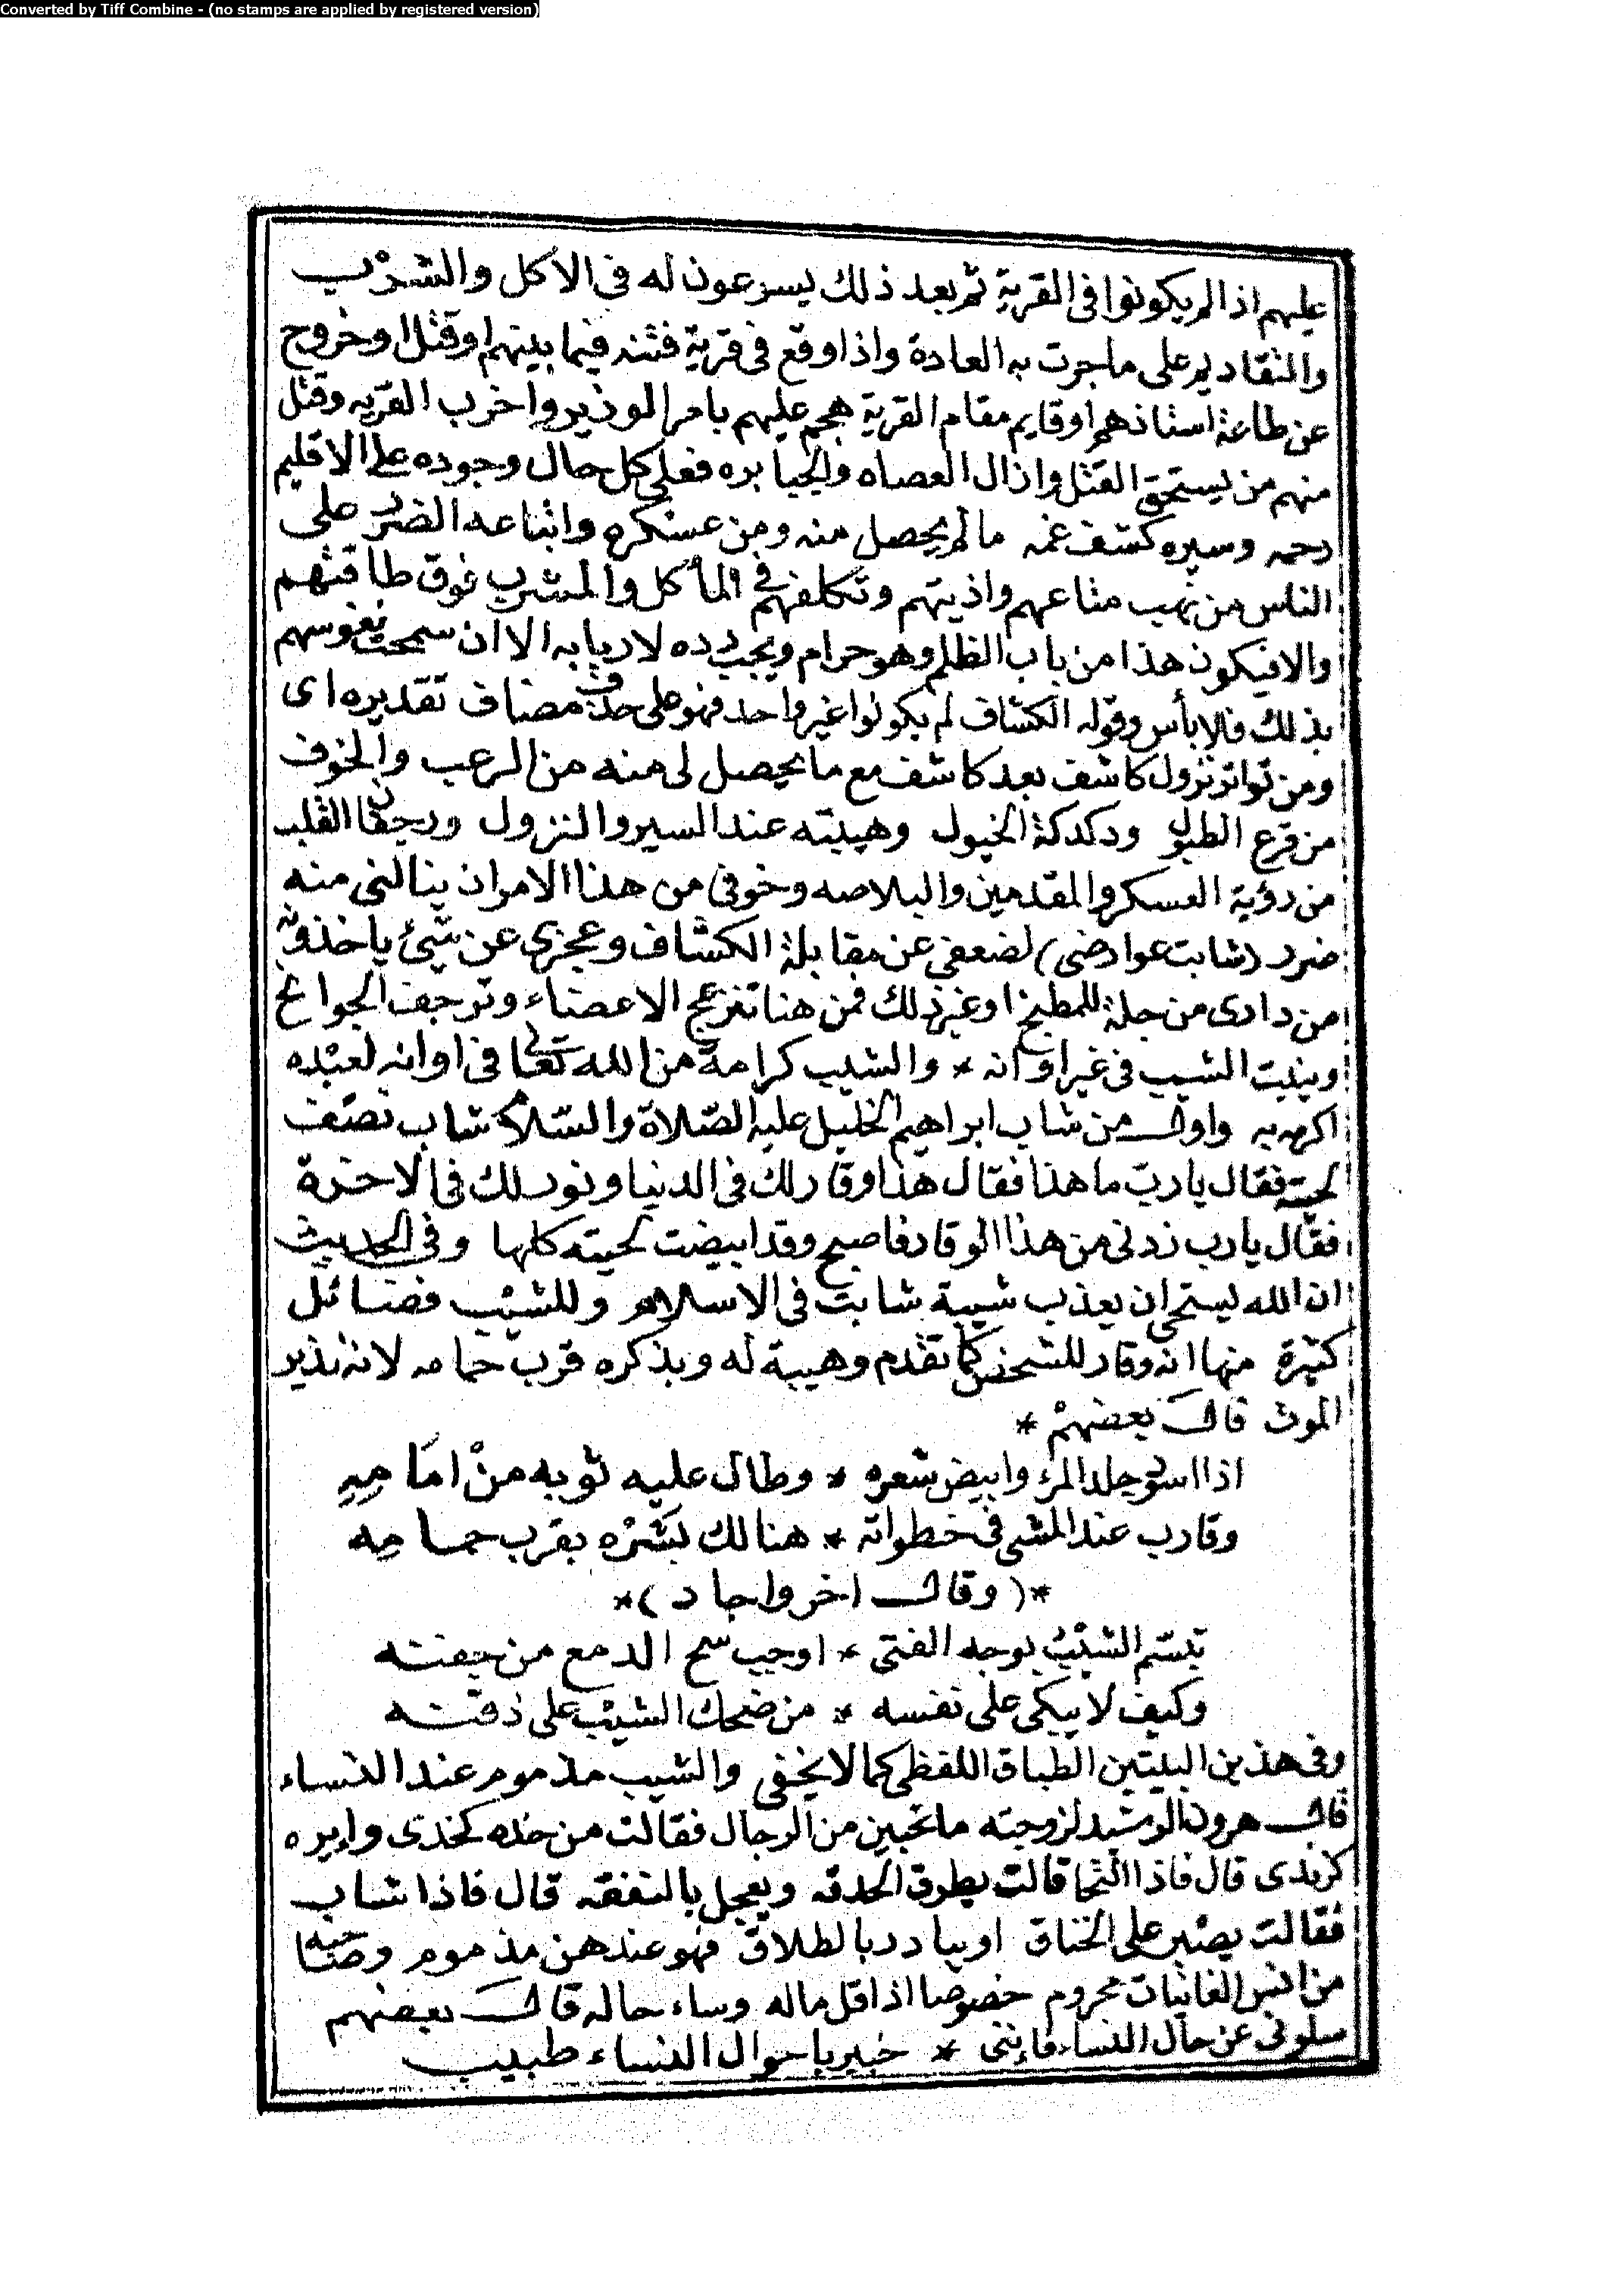 Converted by Tiff Combine - (no stamps are applied by registered version)
عليهم اذا لم يكونوا فى القرية ثم بعد ذلك يسرعون له فى الاكل والشرب
والتقادير على ما جرت به العادة واذا وقع فى قرية فتنه فيما بينهم او قتل او خروج
عن طاعة استاذهم او قايم مقام القرية هجم عليهم بامر الوزير واخرب القريه وقتل
منهم من يستحق القتل وازال العصاه والجبابره فعلى كل حال وجوده على الاقليم
رحمه وسيره كشف غمه ما لم يحصل منه ومن عسكره واتباعه الضرر على
الناس من نهب متاعهم واذيتهم وتكلفهم فى المأكل والمشرب فوق طاقتهم
والا فيكون هذا من باب الظلم وهو حرام ويجب رده لاربابه الا ان سمحت نفوسهم
بذلك فلا بأس وقوله الكشاف لم يكونوا غير واحد فهو على حذف مضاف تقديره اى
ومن تواتر نزول كاشف بعد كاشف مع ما يحصل لى منه من الرعب والخوف
من قرع الطبول ودكدكة الخيول وهيبته عند السير والنزول ورجفان القلب
من رؤية العسكر والمقدمين والبلاصه وخوفى من هذا الامر ان ينالنى منه
ضرر (شابت عوارضى) لضعفى عن مقابلة الكشاف وعجزى عن شيئ ياخذونه
من دارى من جملة للمطبخ او غير ذلك فمن هنا تنزعج الاعضاء وترجف الجوانح
وينبت الشيب فى غير اوانه * والشيب كرامة من الله تعالى فى اوانه لعبده
اكرمه به واول من شاب ابراهيم الخليل عليه الصلاة والسلام شاب نصف
لحيته فقال يارب ما هذا فقال هذا وقار لك فى الدنيا ونور لك فى الاخرة
فقال يارب زدنى من هذا الوقار فاصبح وقد ابيضت لحيته كلها وفى الحديث
ان الله يستحى ان يعذب شيبة شابت فى الاسلام وللشيب فضائل
كثيرة منها انه وقار للشخص كما تقدم وهيبة له وبذكره قرب حمامه لانه نذير
الموت قال بعضهم *
اذا اسود جلد المرء وابيض شعره * وطال عليه ثوبه من امامِهِ
وقارب عند المشى فى خطواته * هنالك بشره بقرب حمامِه
*( وقال اخر واجاد )*
تبسّم الشيبُ بوجه الفتى * اوجب سح الدمع من جفنه
وكيف لا يبكى على نفسه * من ضحك الشيب على ذقنه
وفى هذين البيتين الطباق اللفظى كما لا يخفى والشيب مذموم عند النساء
قال هرون الرشيد لزوجته ما تحبين من الرجال فقالت من خده كخدى وايره
كزندى قال فاذا التحا قالت يطرق الحدقه ويعجل بالنفقه قال فاذا شاب
فقالت يصبر على الخناق او يبادر بالطلاق فهو عندهن مذموم وصاحبه
من انس الغانيات محروم خصوصا اذا قل ماله وساء حاله قال بعضهم
سلونى عن حال النساء فإننى * خبير باحوال النساء طبيب